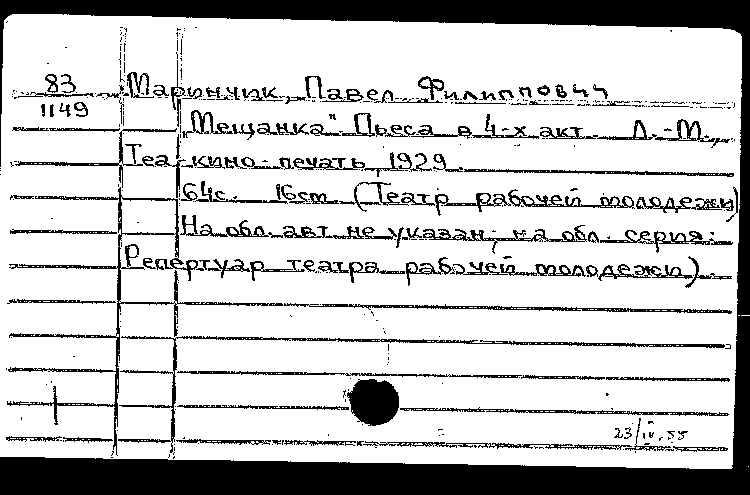 83
1149
Маринчик, Павел Филиппович
"Мещанка". Пьеса в 4-х акт. Л.-М.,
Теа-кино-печать, 1929.
64с. 16cm (Театр рабочей молодежи)
На обл. авт. не указан; на обл. серия:
Репертуар театра рабочей молодежи).
23/IV.55